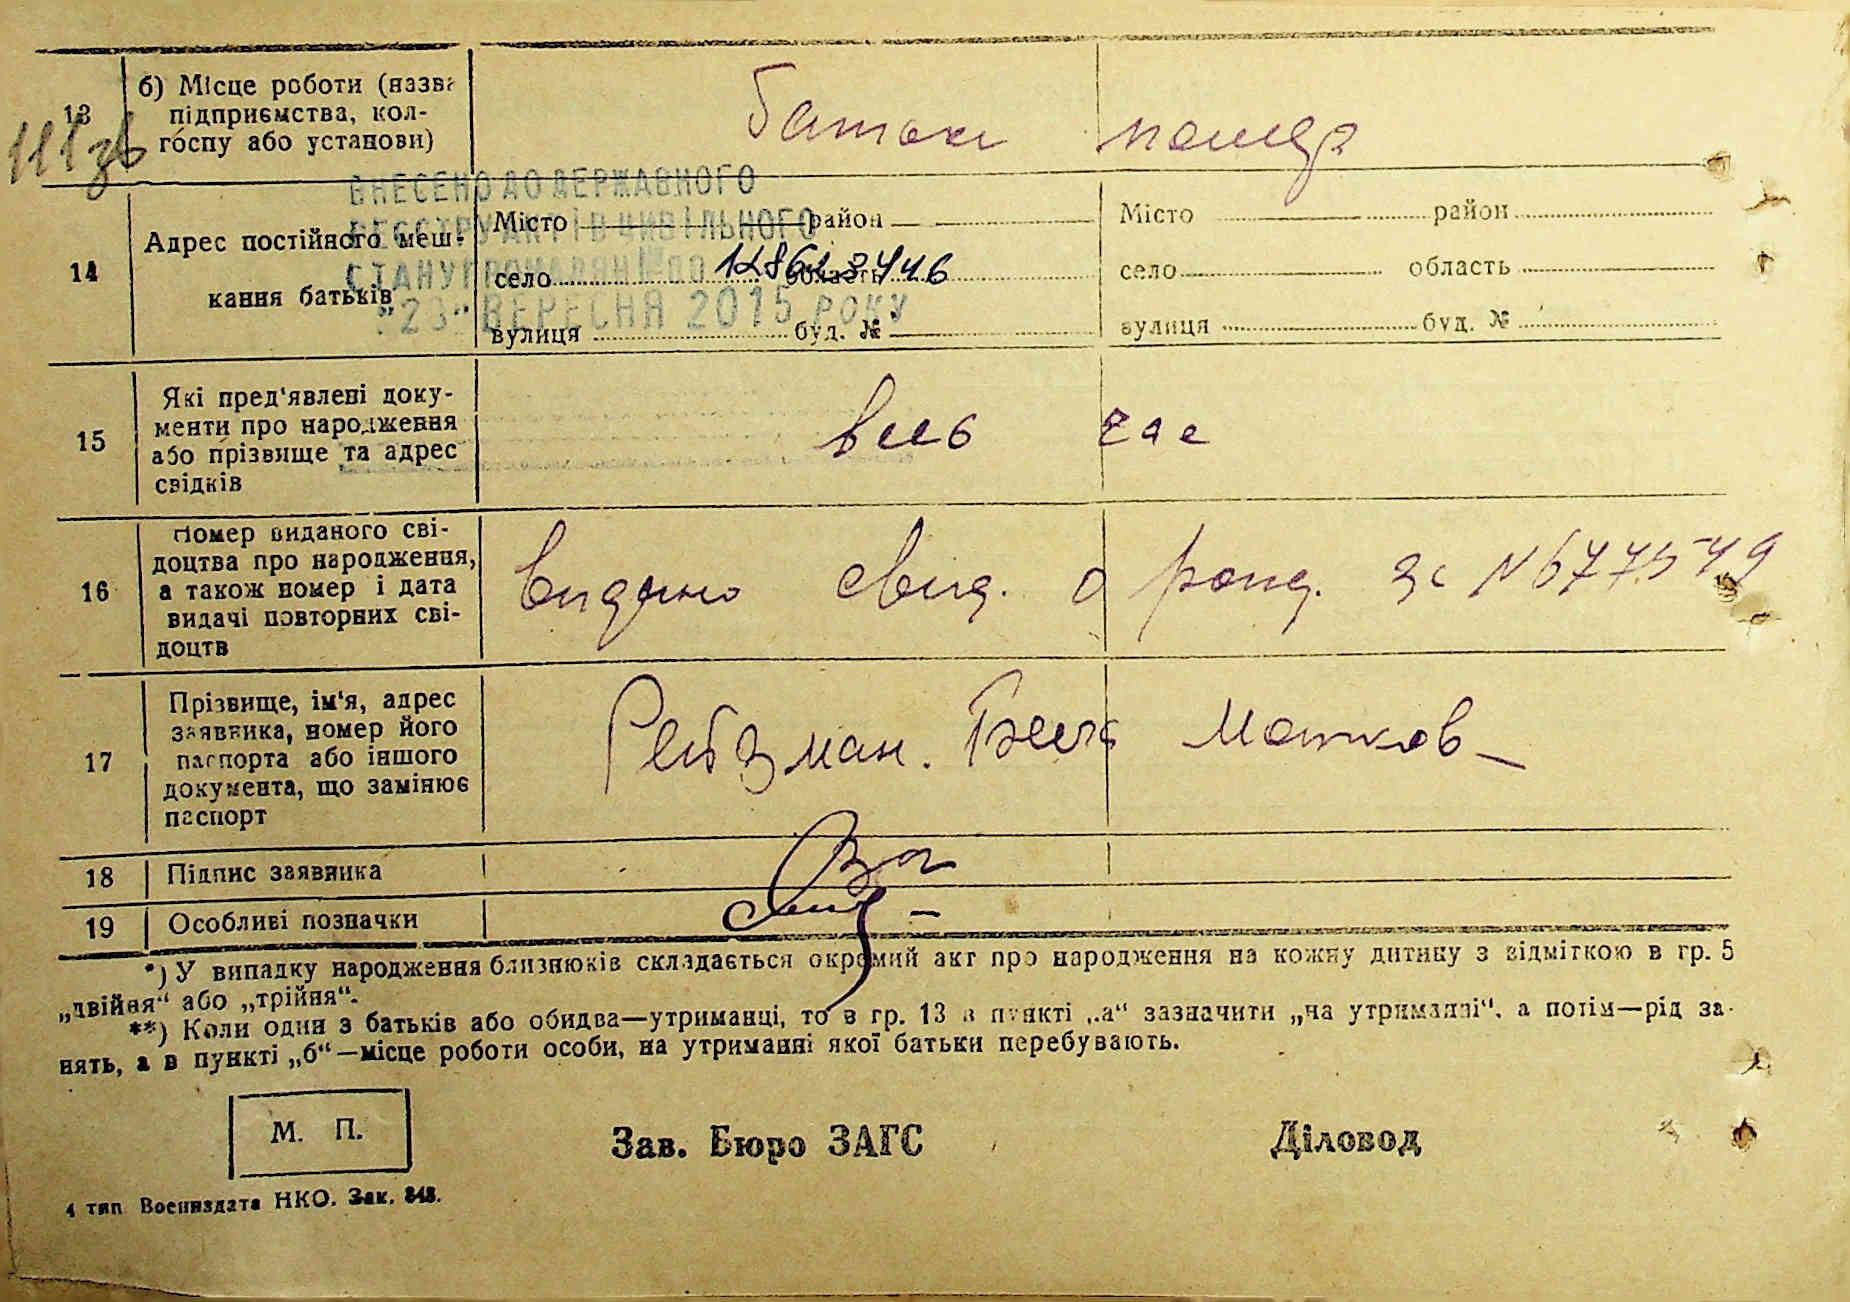 13
б) Місце роботи (назва
підприємства, кол-
госпу або установи)
ВНЕСЕНО ДО ДЕРЖАВНОГО
РЕЄСТРУ АКТІВ ЦИВІЛЬНОГО
СТАНУ ГРОМАДЯН
"23" ВЕРЕСНЯ 2015 РОКУ
14
Адрес постійного меш-
кання батьків
Місто район
село область
вулиця буд. №
Місто район
село область
вулиця буд. №
15
Які пред'явлені доку-
менти про народження
або прізвище та адрес
свідків
16
Номер виданого сві-
доцтва про народження,
а також номер і дата
видачі повторних сві-
доцтв
видано свид. о рожд. за N 677549
17
Прізвище, ім'я, адрес
заявника, номер його
паспорта або іншого
документа, що замінює
паспорт
Рейзман.
18 Підпис заявника
19 Особливі позначки
*) У випадку народження близнюків складається окремий акт про народження на кожну дитину з відміткою в гр. 5
„двійня“ або „трійня“.
**) Коли один з батьків або обидва—утриманці, то в гр. 13 в пункті „а“ зазначити „на утриманні“, а потім—рід за-
нять, а в пункті „б“—місце роботи особи, на утриманні якої батьки перебувають.
М. П.
Зав. Бюро ЗАГС
Діловод
4 тип Воениздата НКО. Зак. 848.